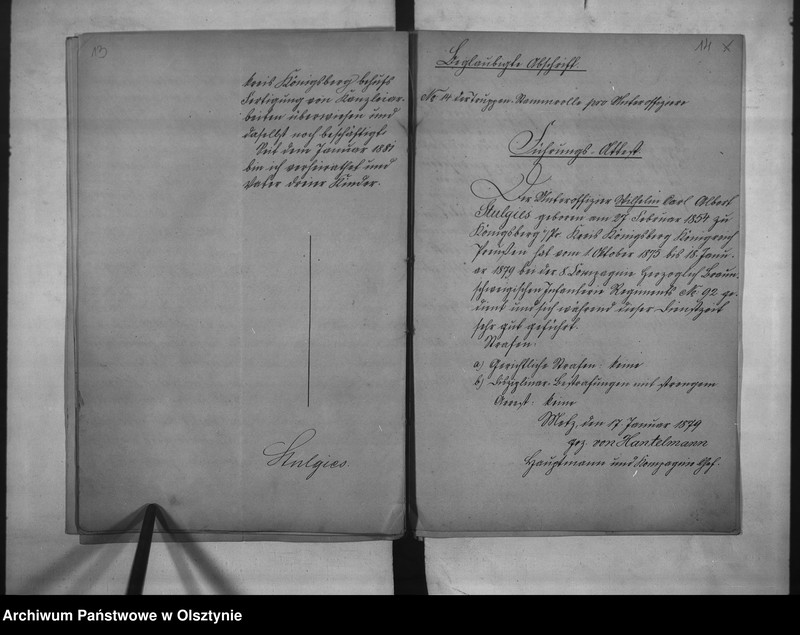 13
kreis Königsberg behufs
Fertigung von Kanzleiar-
beiten überwiesen und
daselbst noch beschäftigt.
Seit dem Januar 1881
bin ich verheirathet und
Vater dreier Kinder.
Stulgies.
14 x
Beglaubigte Abschrift.
No 14 der Truppen-Stammrolle pro Unteroffiziere
Führungs-Attest
Der Unteroffizier Wilhelm Carl Albert
Stulgies geboren am 27 Februar 1854 zu
Königsberg i/Pr. Kreis Königsberg Königreich
Preußen hat vom 1 Oktober 1873 bis 18. Janu-
ar 1879 bei der 8. Kompagnie Herzoglich Braun-
schweigischen Infanterie Regiments No 92 ge-
dient und sich während dieser Dienstzeit
sehr gut geführt.
Strafen:
a) Gerichtliche Strafen: keine
b) Disziplinar-Bestrafungen mit strengem
Arrest: keine
Metz, den 17 Januar 1879
gez. von Hantelmann
Hauptmann und Kompagnie Chef.
Archiwum Państwowe w Olsztynie